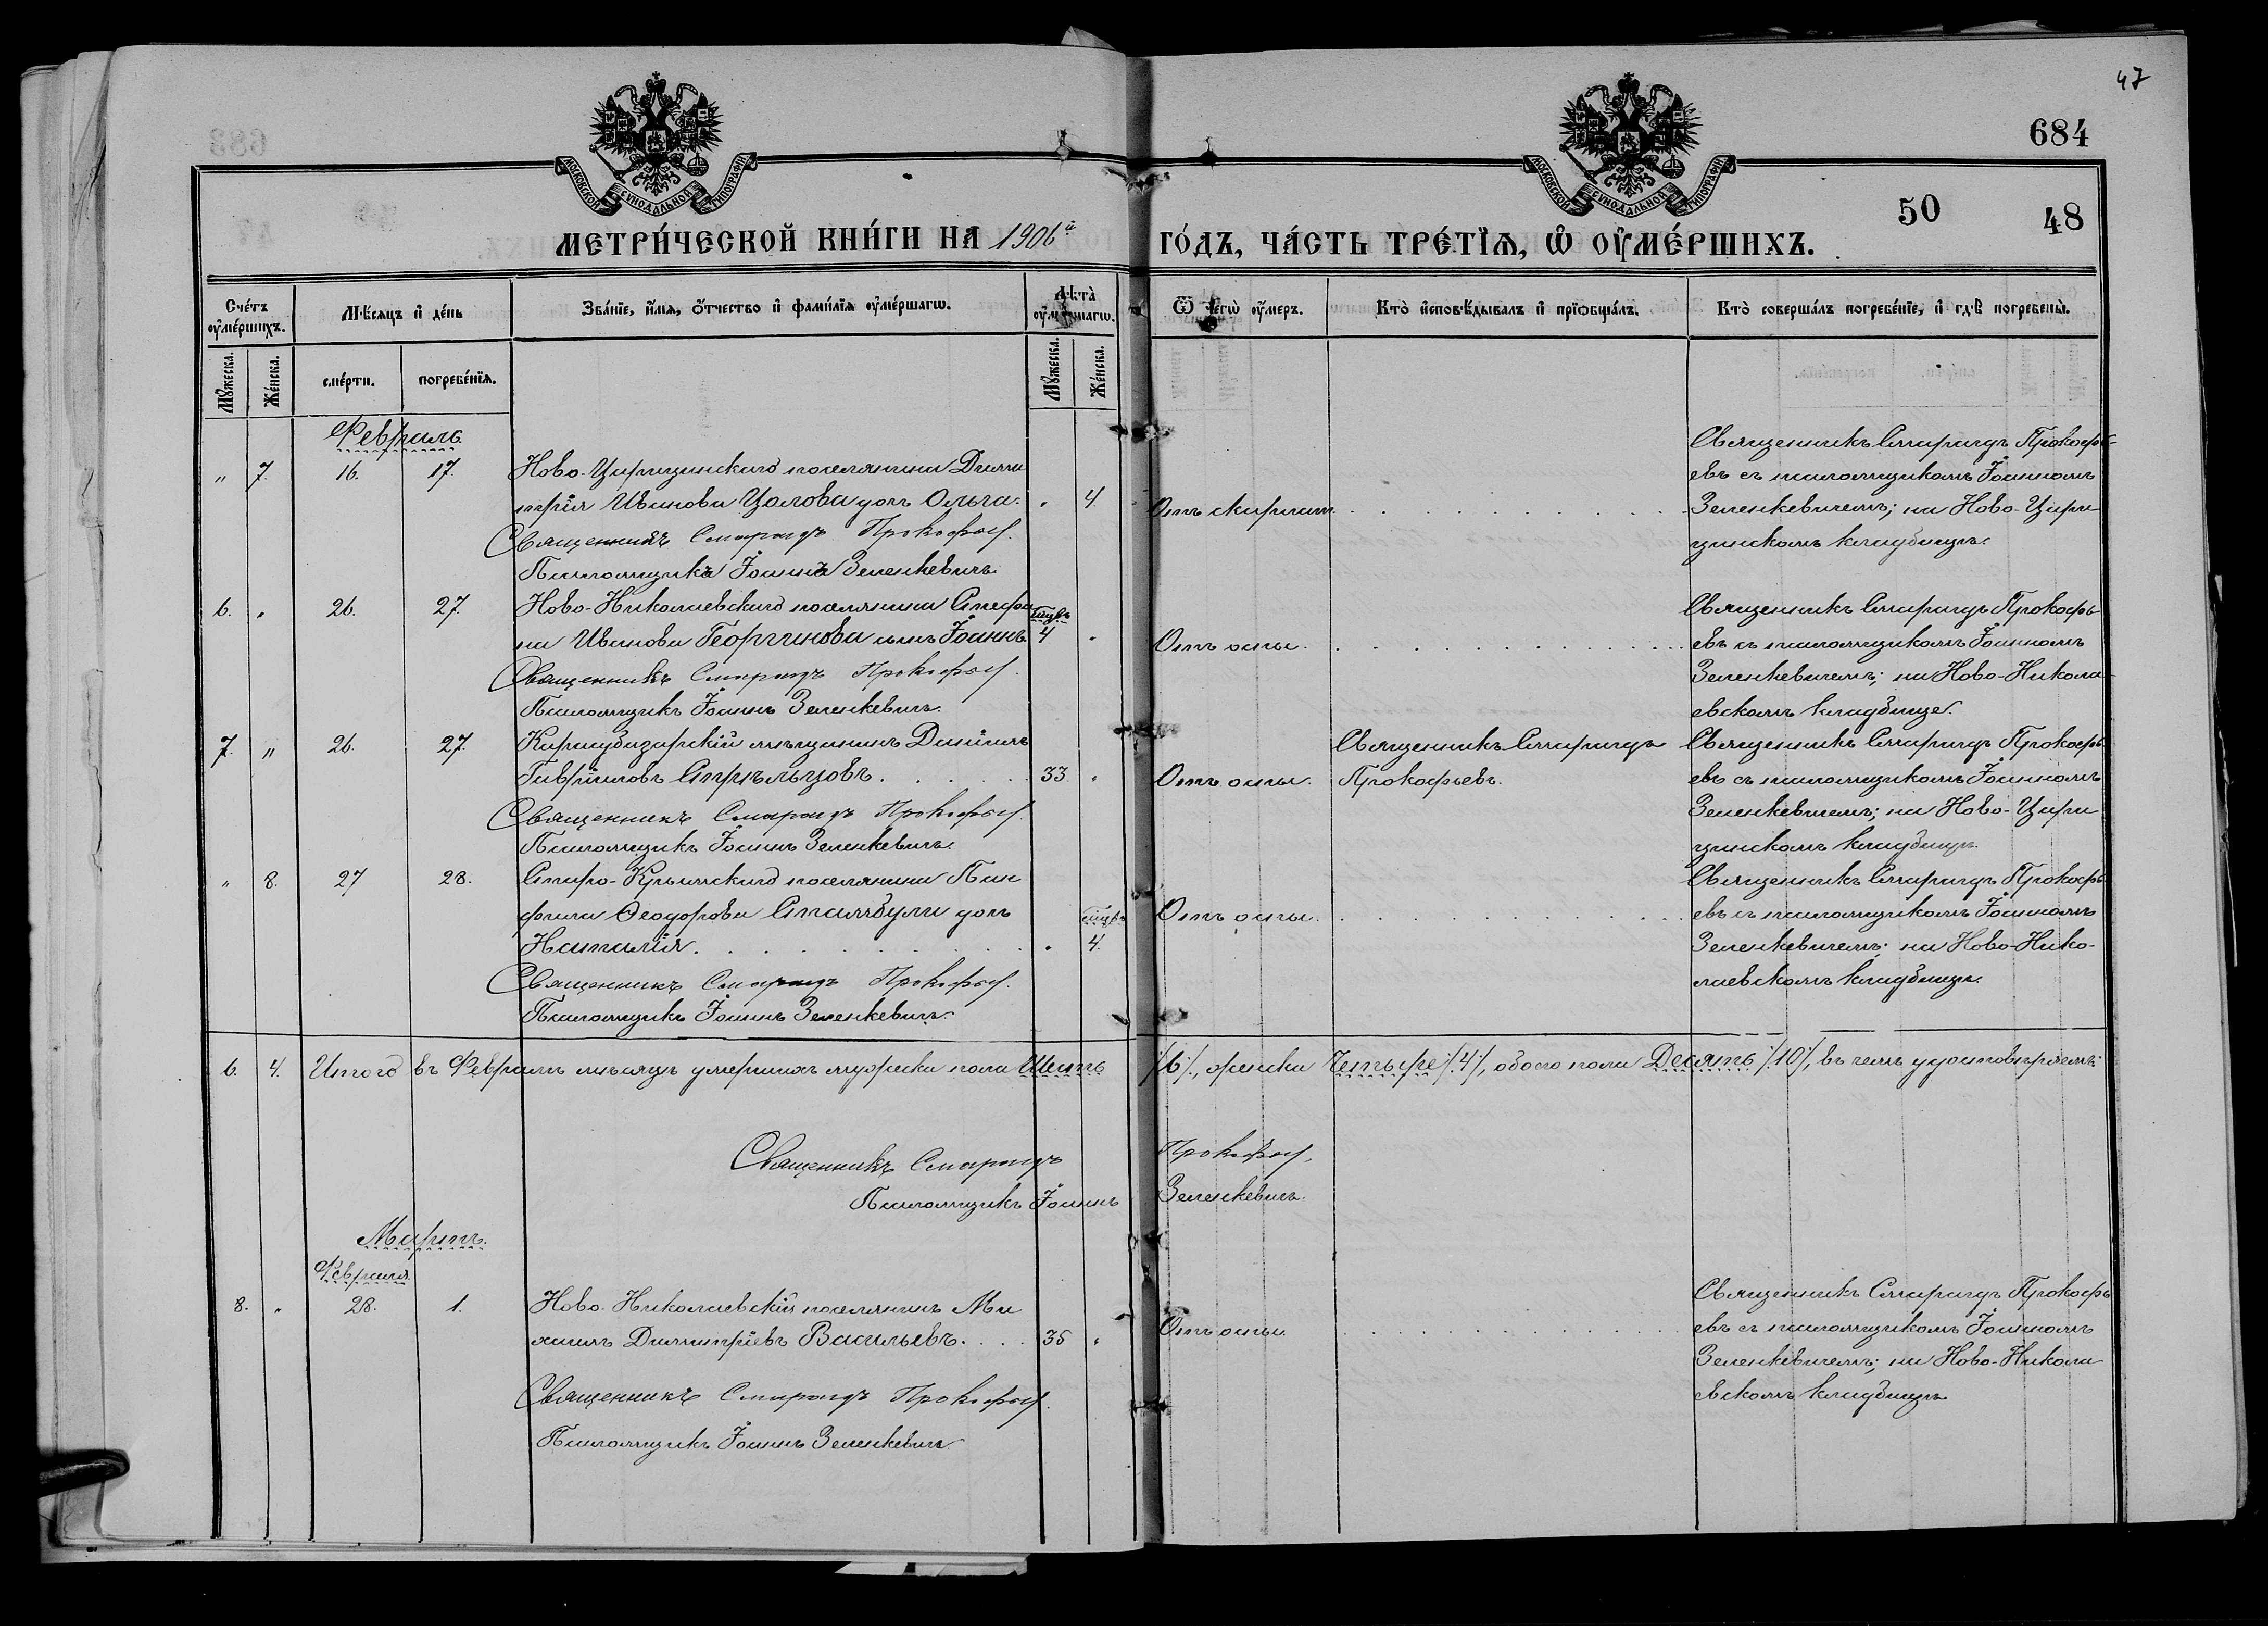 47
684
МОСКОВСКОЙ СѴНОДАЛЬНОЙ ТИПОГРАФІИ
МОСКОВСКОЙ СѴНОДАЛЬНОЙ ТИПОГРАФІИ
50
48
МЕТРИ́ЧЕСКОЙ КНИ́ГИ НА 1906й ГО́ДЪ, ЧА́СТЬ ТРЕ́ТЇѦ, Ѡ ОУ҆МЕ́РШИХЪ.
Сче́тъ оу҆ме́ршихъ.
Мѣ́сяцъ и҆ де́нь
Зва́нїе, и҆́мя, ѻ҆́тчество и҆ фами́лїя оу҆ме́ршагѡ.
Лѣ́та оу҆ме́ршагѡ.
Ѿ чегѡ̀ оу҆́меръ.
Кто̀ и҆сповѣ́дывалъ и҆ прїѡбща́лъ.
Кто̀ соверша́лъ погребе́нїе, и҆ гдѣ̀ погребены̀.
Мꙋ́жеска.
Же́нска.
сме́рти.
погребе́нїя.
Мꙋ́жеска.
Же́нска.
Февраль.
" 7. 16. 17. Ново-Царицинскаго поселянина Дими
трія Иванова Цолова дочь Ольга. . 4. Отъ скарлат.
Священникъ Смарагдъ Прокофьев.
Псаломщикъ Іоаннъ Зеленкевичъ.
Священникъ Смарагдъ Прокофь-
евъ съ псаломщикомъ Іоанномъ
Зеленкевичемъ; на Ново-Цари
цинскомъ кладбищѣ.
6. " 26. 27. Ново-Николаевскаго поселянина Стефа
на Иванова Георгинова сынъ Іоаннъ 4 " Отъ оспы.
Священникъ Смарагдъ Прокофьев.
Псаломщикъ Іоаннъ Зеленкевичъ.
Священникъ Смарагдъ Прокофь
евъ съ псаломщикомъ Іоанномъ
Зеленкевичемъ; на Ново-Никола-
евскомъ кладбище.
7. " 26. 27. Карасубазарскій мѣщанинъ Даніилъ
Гавріиловъ Стрѣльцовъ. 33 " Отъ оспы.
Священникъ Смарагдъ Прокофьев.
Псаломщикъ Іоаннъ Зеленкевичъ.
Священникъ Смарагдъ
Прокофьевъ.
Священникъ Смарагдъ Прокофь
евъ съ псаломщикомъ Іоанномъ
Зеленкевичемъ; на Ново-Цари
цинскомъ кладбищѣ.
" 8. 27 28. Старо-Крымскаго поселянина Пан
фила Ѳеодорова Стамбули дочь
Наталія. . 4. Отъ оспы.
Священникъ Смарагдъ Прокофьев.
Псаломщикъ Іоаннъ Зеленкевичъ.
Священникъ Смарагдъ Прокофь
евъ съ псаломщикомъ Іоанномъ
Зеленкевичемъ; на Ново-Нико-
лаевскомъ кладбищѣ.
6. 4. Итого въ Февралѣ мѣсяцѣ умершихъ мужеска пола Шесть /6/, женска Четыре /4/, обоего пола Десять /10/, въ чемъ удостовѣряемъ:
Священникъ Смарагдъ Прокофьев.
Псаломщикъ Іоаннъ Зеленкевичъ.
Мартъ.
Февраля.
8. " 28. 1. Ново-Николаевскій поселянинъ Ми
хаилъ Димитріевъ Васильевъ. 35 " Отъ оспы.
Священникъ Смарагдъ Прокофьев.
Псаломщикъ Іоаннъ Зеленкевичъ.
Священникъ Смарагдъ Прокофь
евъ съ псаломщикомъ Іоанномъ
Зеленкевичемъ; на Ново-Никола
евскомъ кладбищѣ